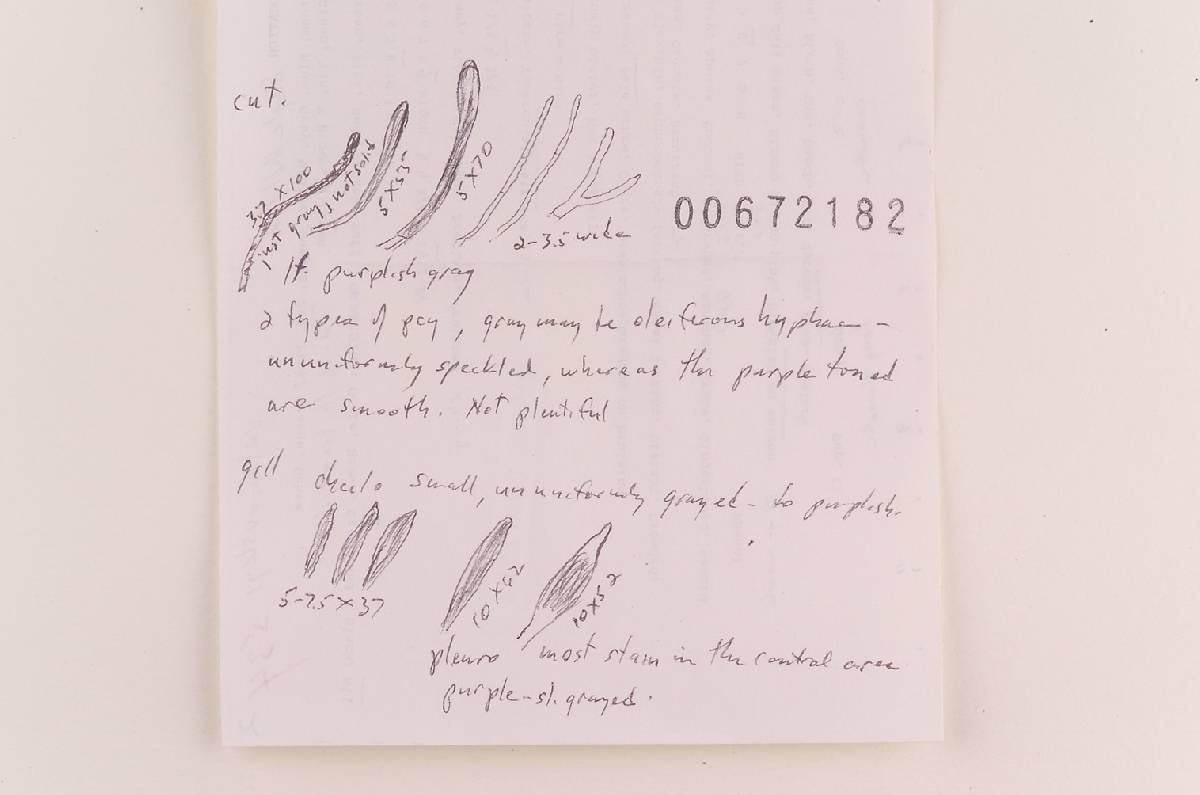 cut.
3.2 X 100
just gray, not solid
5 X 55
5 X 70
2-3.5 wide
00672182
lt purplish gray
2 types of pcy, gray may be oleiferous hyphae -
ununiformly speckled, whereas the purple toned
are smooth. Not plentiful
gill cheilo small, ununiformly grayed - to purplish.
5-7.5 X 37
10 X 42
10 X 52
pleuro most stain in the central area
purple - sl. grayed.